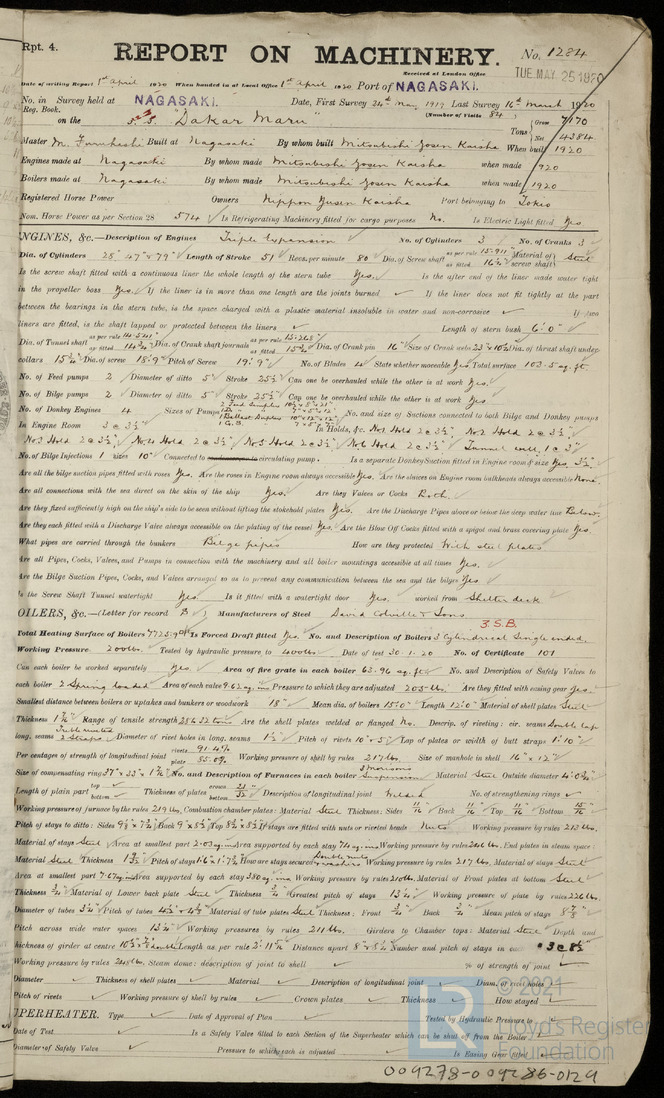 Rpt. 4.
REPORT ON MACHINERY. No. 1284
Received at London Office TUE. MAY 25 1920
Date of writing Report 1st April 1920 When handed in at Local Office 1st April 1920 Port of NAGASAKI.
No. in Survey held at NAGASAKI. Date, First Survey 24th May, 1919 Last Survey 16th March 1920
Reg. Book. (Number of Visits 84)
on the S.S. "Dakar Maru" Tons Gross 7170 Net 4384
Master M. Furuhashi Built at Nagasaki By whom built Mitsubishi Zosen Kaisha When built 1920
Engines made at Nagasaki By whom made Mitsubishi Zosen Kaisha when made 1920
Boilers made at Nagasaki By whom made Mitsubishi Zosen Kaisha when made 1920
Registered Horse Power Owners Nippon Yusen Kaisha Port belonging to Tokio
Nom. Horse Power as per Section 28 574 Is Refrigerating Machinery fitted for cargo purposes No. Is Electric Light fitted Yes
NGINES, &c.—Description of Engines Triple Expansion No. of Cylinders 3 No. of Cranks 3
Dia. of Cylinders 28" 47" & 79" Length of Stroke 51" Revs. per minute 80 Dia. of Screw shaft as per rule 15.911" as fitted Material of screw shaft Steel
Is the screw shaft fitted with a continuous liner the whole length of the stern tube Yes. Is the after end of the liner made water tight
in the propeller boss Yes. If the liner is in more than one length are the joints burned If the liner does not fit tightly at the part
between the bearings in the stern tube, is the space charged with a plastic material insoluble in water and non-corrosive If two
liners are fitted, is the shaft lapped or protected between the liners Length of stern bush 6'-0"
Dia. of Tunnel shaft as per rule as fitted Dia. of Crank shaft journals as per rule 15.268" as fitted 15¾" Dia. of Crank pin 16" Size of Crank webs Dia. of thrust shaft under
collars 15¾" Dia. of screw 18'-9" Pitch of Screw 19'-9" No. of Blades 4 State whether moveable Yes. Total surface 103.5 sq. ft.
No. of Feed pumps 2 Diameter of ditto 5" Stroke 25½" Can one be overhauled while the other is at work Yes.
No. of Bilge pumps 2 Diameter of ditto 5" Stroke 25½" Can one be overhauled while the other is at work Yes.
No. of Donkey Engines 4 Sizes of Pumps No. and size of Suctions connected to both Bilge and Donkey pumps
In Engine Room 3 @ 3½" In Holds, &c. No.1 Hold 2 @ 3½" No.2 Hold 2 @ 3½"
No.3 Hold 2 @ 3½" No.4 Hold 2 @ 3½" No.5 Hold 2 @ 3½" No.6 Hold 2 @ 3½" Tunnel well, 1 @ 3"
No. of Bilge Injections 1 sizes 10" Connected to circulating pump. Is a separate Donkey Suction fitted in Engine room & size Yes. 3½"
Are all the bilge suction pipes fitted with roses Yes. Are the roses in Engine room always accessible Yes. Are the sluices on Engine room bulkheads always accessible None.
Are all connections with the sea direct on the skin of the ship Yes. Are they Valves or Cocks Both.
Are they fixed sufficiently high on the ship's side to be seen without lifting the stokehold plates Yes. Are the Discharge Pipes above or below the deep water line Below.
Are they each fitted with a Discharge Valve always accessible on the plating of the vessel Yes. Are the Blow Off Cocks fitted with a spigot and brass covering plate Yes.
What pipes are carried through the bunkers Bilge pipes How are they protected With steel plates
Are all Pipes, Cocks, Valves, and Pumps in connection with the machinery and all boiler mountings accessible at all times Yes.
Are the Bilge Suction Pipes, Cocks, and Valves arranged so as to prevent any communication between the sea and the bilges Yes.
Is the Screw Shaft Tunnel watertight Yes Is it fitted with a watertight door Yes. worked from Shelter deck
OILERS, &c.—(Letter for record B) Manufacturers of Steel David Colville & Sons.
3.S.B.
Total Heating Surface of Boilers Is Forced Draft fitted Yes. No. and Description of Boilers 3 Cylindrical Single ended.
Working Pressure 200 lbs. Tested by hydraulic pressure to 400 lbs. Date of test 30.1.20 No. of Certificate 101
Can each boiler be worked separately Yes. Area of fire grate in each boiler 63.96 sq. ft. No. and Description of Safety Valves to
each boiler 2 Spring loaded Area of each valve 9.62 sq. ins Pressure to which they are adjusted 205 lbs. Are they fitted with easing gear Yes.
Smallest distance between boilers or uptakes and bunkers or woodwork 18" Mean dia. of boilers 15'-0" Length 12'-0" Material of shell plates Steel
Thickness Range of tensile strength 28 & 32 tons Are the shell plates welded or flanged No. Descrip. of riveting: cir. seams Double lap
long. seams Treble riveted 2 Straps Diameter of rivet holes in long. seams Pitch of rivets Lap of plates or width of butt straps 1'-10"
Per centages of strength of longitudinal joint rivets 91.4% plate 85.0% Working pressure of shell by rules 217 lbs. Size of manhole in shell 16" x 12"
Size of compensating ring No. and Description of Furnaces in each boiler 3 Morisons Suspension Material Steel Outside diameter
Length of plain part top bottom Thickness of plates crown bottom Description of longitudinal joint Welded No. of strengthening rings
Working pressure of furnace by the rules 219 lbs. Combustion chamber plates: Material Steel Thickness: Sides 11/16" Back 11/16" Top 11/16" Bottom 15/16"
Pitch of stays to ditto: Sides Back Top If stays are fitted with nuts or riveted heads Nuts Working pressure by rules 213 lbs.
Material of stays Steel Area at smallest part 2.03 sq. ins Area supported by each stay Working pressure by rules End plates in steam space:
Material Steel Thickness Pitch of stays How are stays secured Double nuts & washers Working pressure by rules 217 lbs. Material of stays Steel
Area at smallest part 7.67 sq. ins Area supported by each stay 380 sq. ins Working pressure by rules 210 lbs. Material of Front plates at bottom Steel
Thickness ¾" Material of Lower back plate Steel Thickness ¾" Greatest pitch of stays Working pressure of plate by rules 226 lbs.
Diameter of tubes 3¼" Pitch of tubes Material of tube plates Steel Thickness: Front ¾" Back ¾" Mean pitch of stays
Pitch across wide water spaces 13¼" Working pressures by rules 211 lbs. Girders to Chamber tops: Material Steel Depth and
thickness of girder at centre Length as per rule 2'-11⅞" Distance apart Number and pitch of stays in each 3 @ 8½"
Working pressure by rules Steam dome: description of joint to shell % of strength of joint
Diameter Thickness of shell plates Material Description of longitudinal joint Diam. of rivet holes
Pitch of rivets Working pressure of shell by rules Crown plates Thickness How stayed
UPERHEATER. Type Date of Approval of Plan Tested by Hydraulic Pressure to
Date of Test Is a Safety Valve fitted to each Section of the Superheater which can be shut off from the Boiler
Diameter of Safety Valve Pressure to which each is adjusted Is Easing Gear fitted
© 2021
LR
Lloyd's Register
Foundation
009278-009286-0129